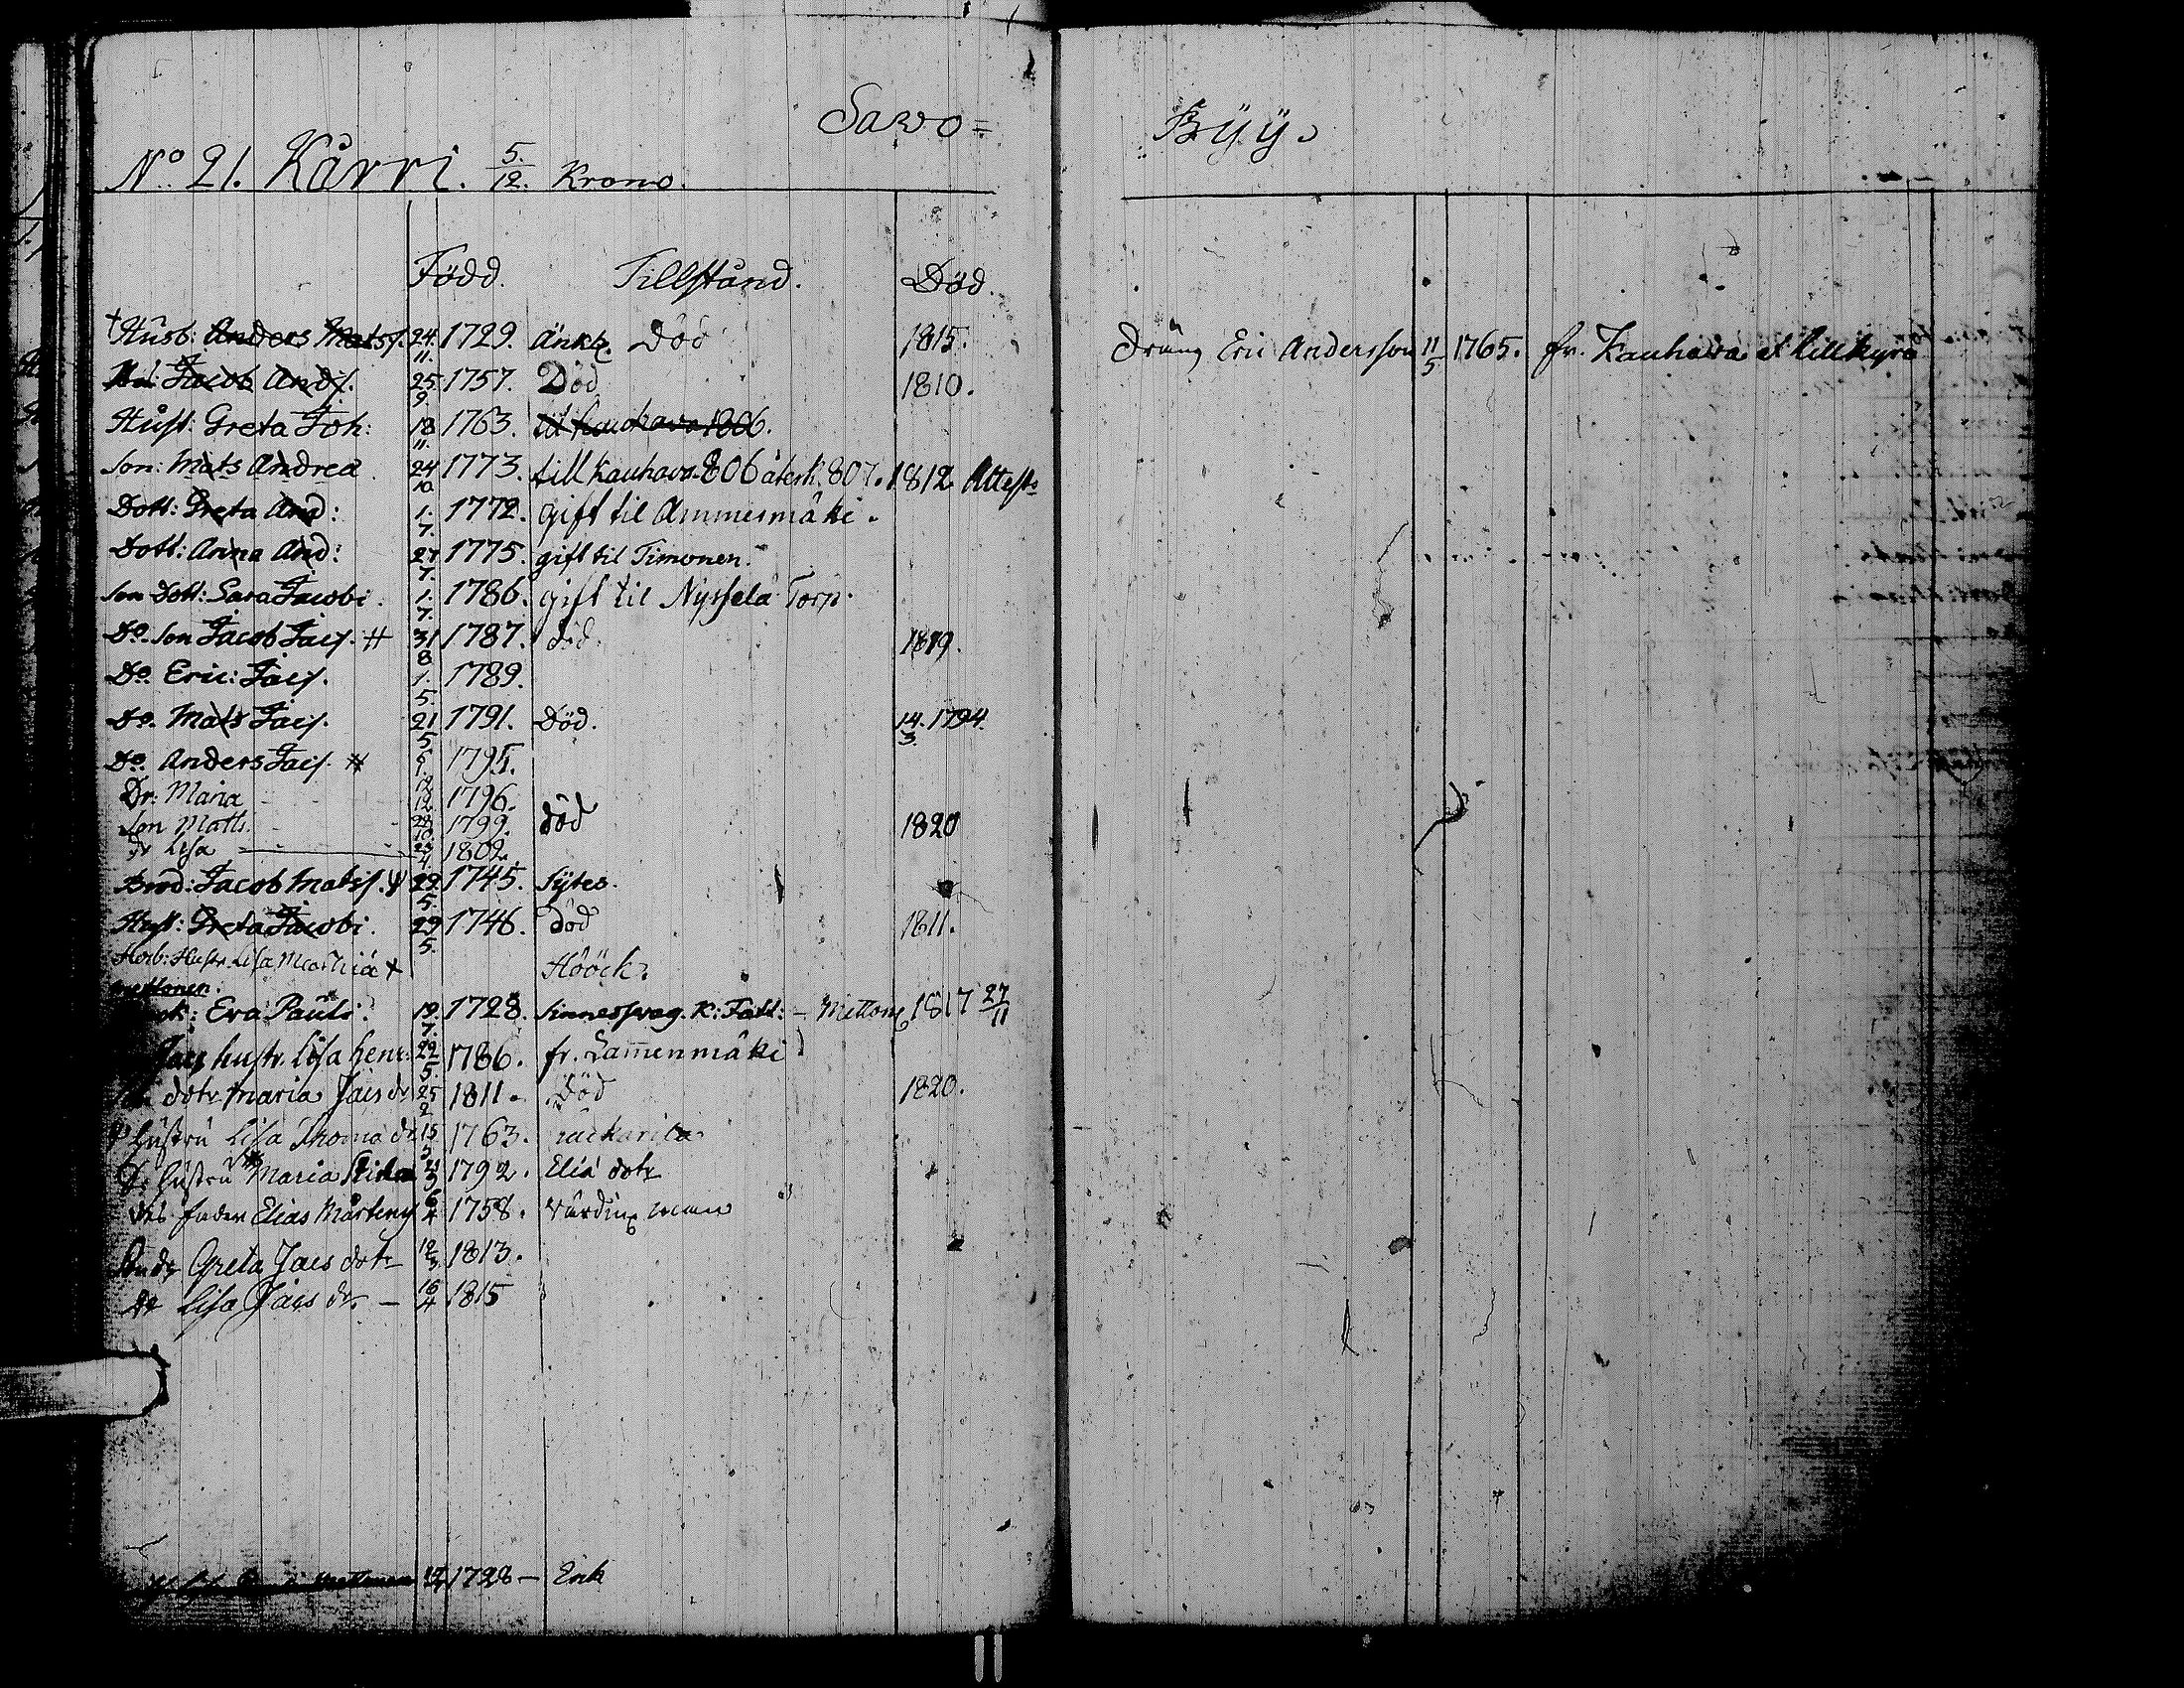 Sawo=
No. 21. Kårri. 5/12. Krono.
Född. Tillstånd. Död.
† Husb: Anders Matss. 24/11. 1729. Änkl. Död 1815.
Jacob Ands. 25/9. 1757. Död 1810.
Hust: Greta Joh: 18/11. 1763. til Kauhava 1806.
Son: Mats Andreæ 24/10 1773. till Kauhava 806 återk. 807. 1812 Attest
Dott: Greta And: 1/7. 1772. gift til Ammesmäki.
Dott: Anna And: 27/7. 1775. gift til Timonen.
Son Dott: Sara Jacobi. 1/7. 1786. gift til Nyssela Torp.
Do. Son Jacob Jacs. # 31/8 1787. död. 1819.
Do. Eric: Jacs. 1/5. 1789.
Do. Mats Jacs. 21/5 1791. Död. 14/3. 1794.
Do. Anders Jacs. # 1795.
Dr: Maria 12/12 1796.
Son Matts 28/10 1799. död 1820
Dr Lisa 23/4. 1802.
Brod: Jacob Matss. 29/5. 1745. Sytes.
Hust: Greta Jacobi. 29/5. 1746. Död 1811.
Hustr. Lisa + Höök.
Mettonen.
Eva Pauli: 19/7. 1728. Sinnessvag. K: Fatt: 1817 27/11
Jacs hustr. Lisa Henr: 22/5. 1786. fr. Lammenmäki
dotr Maria Jacs dr 25/2 1811. Död 1820.
Hustru Lisa Thomæ dr 15/ 1763.
Hustru Maria 1792. Eliæ dotr
des fader Elias Mårtens 6/4 1758.
Greta Jacs dotr 12/3 1813.
Do Lisa Jacs dr. 16/4 1815
Mettonen 1728 — Enk
Byy.
Dräng Eric Andersson 11/5 1765. fr. Kauhava el Lillkyro